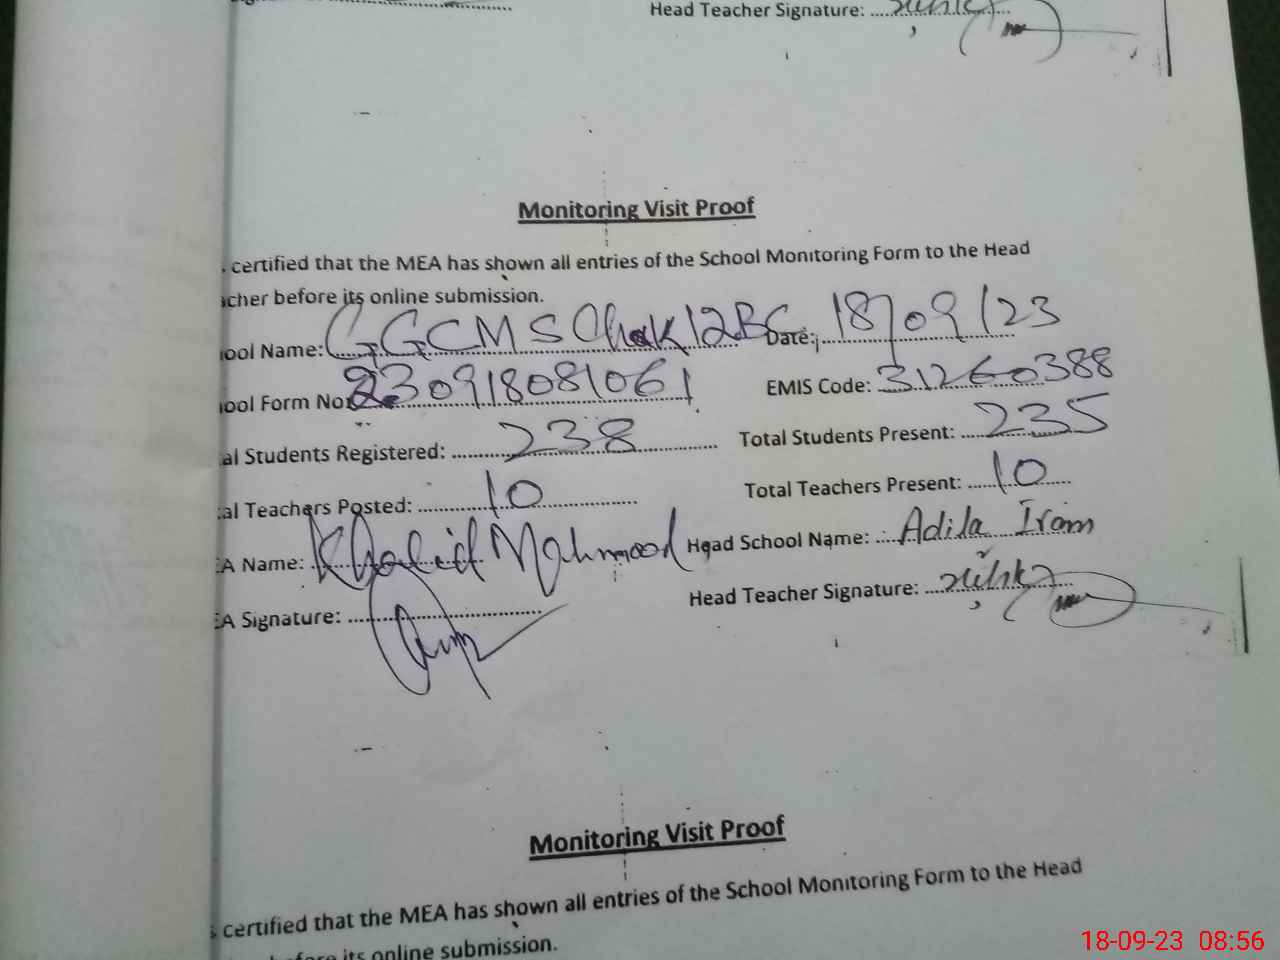 Head Teacher Signature:
Monitoring Visit Proof
certified that the MEA has shown all entries of the School Monitoring Form to the Head
acher before its online submission.
ool Name: GGCMS Chak 12BC Date: 18/09/23
ool Form No: 230918081061 EMIS Code: 31260388
al Students Registered: 238 Total Students Present: 235
al Teachers Posted: 10 Total Teachers Present: 10
EA Name: Khalid Mahmood Head School Name: Adila Iram
EA Signature: Head Teacher Signature:
Monitoring Visit Proof
s certified that the MEA has shown all entries of the School Monitoring Form to the Head
before its online submission.
18-09-23 08:56